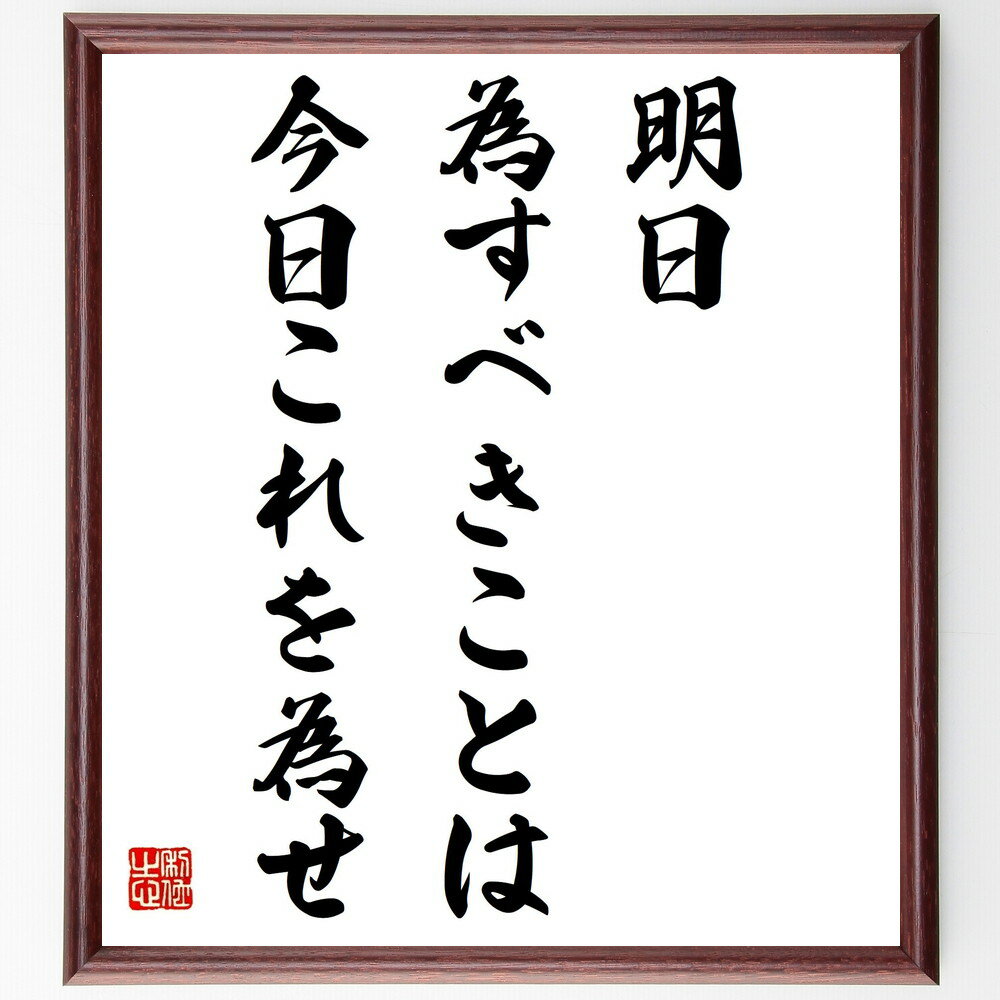 明日
為すべきことは
今日これを為せ